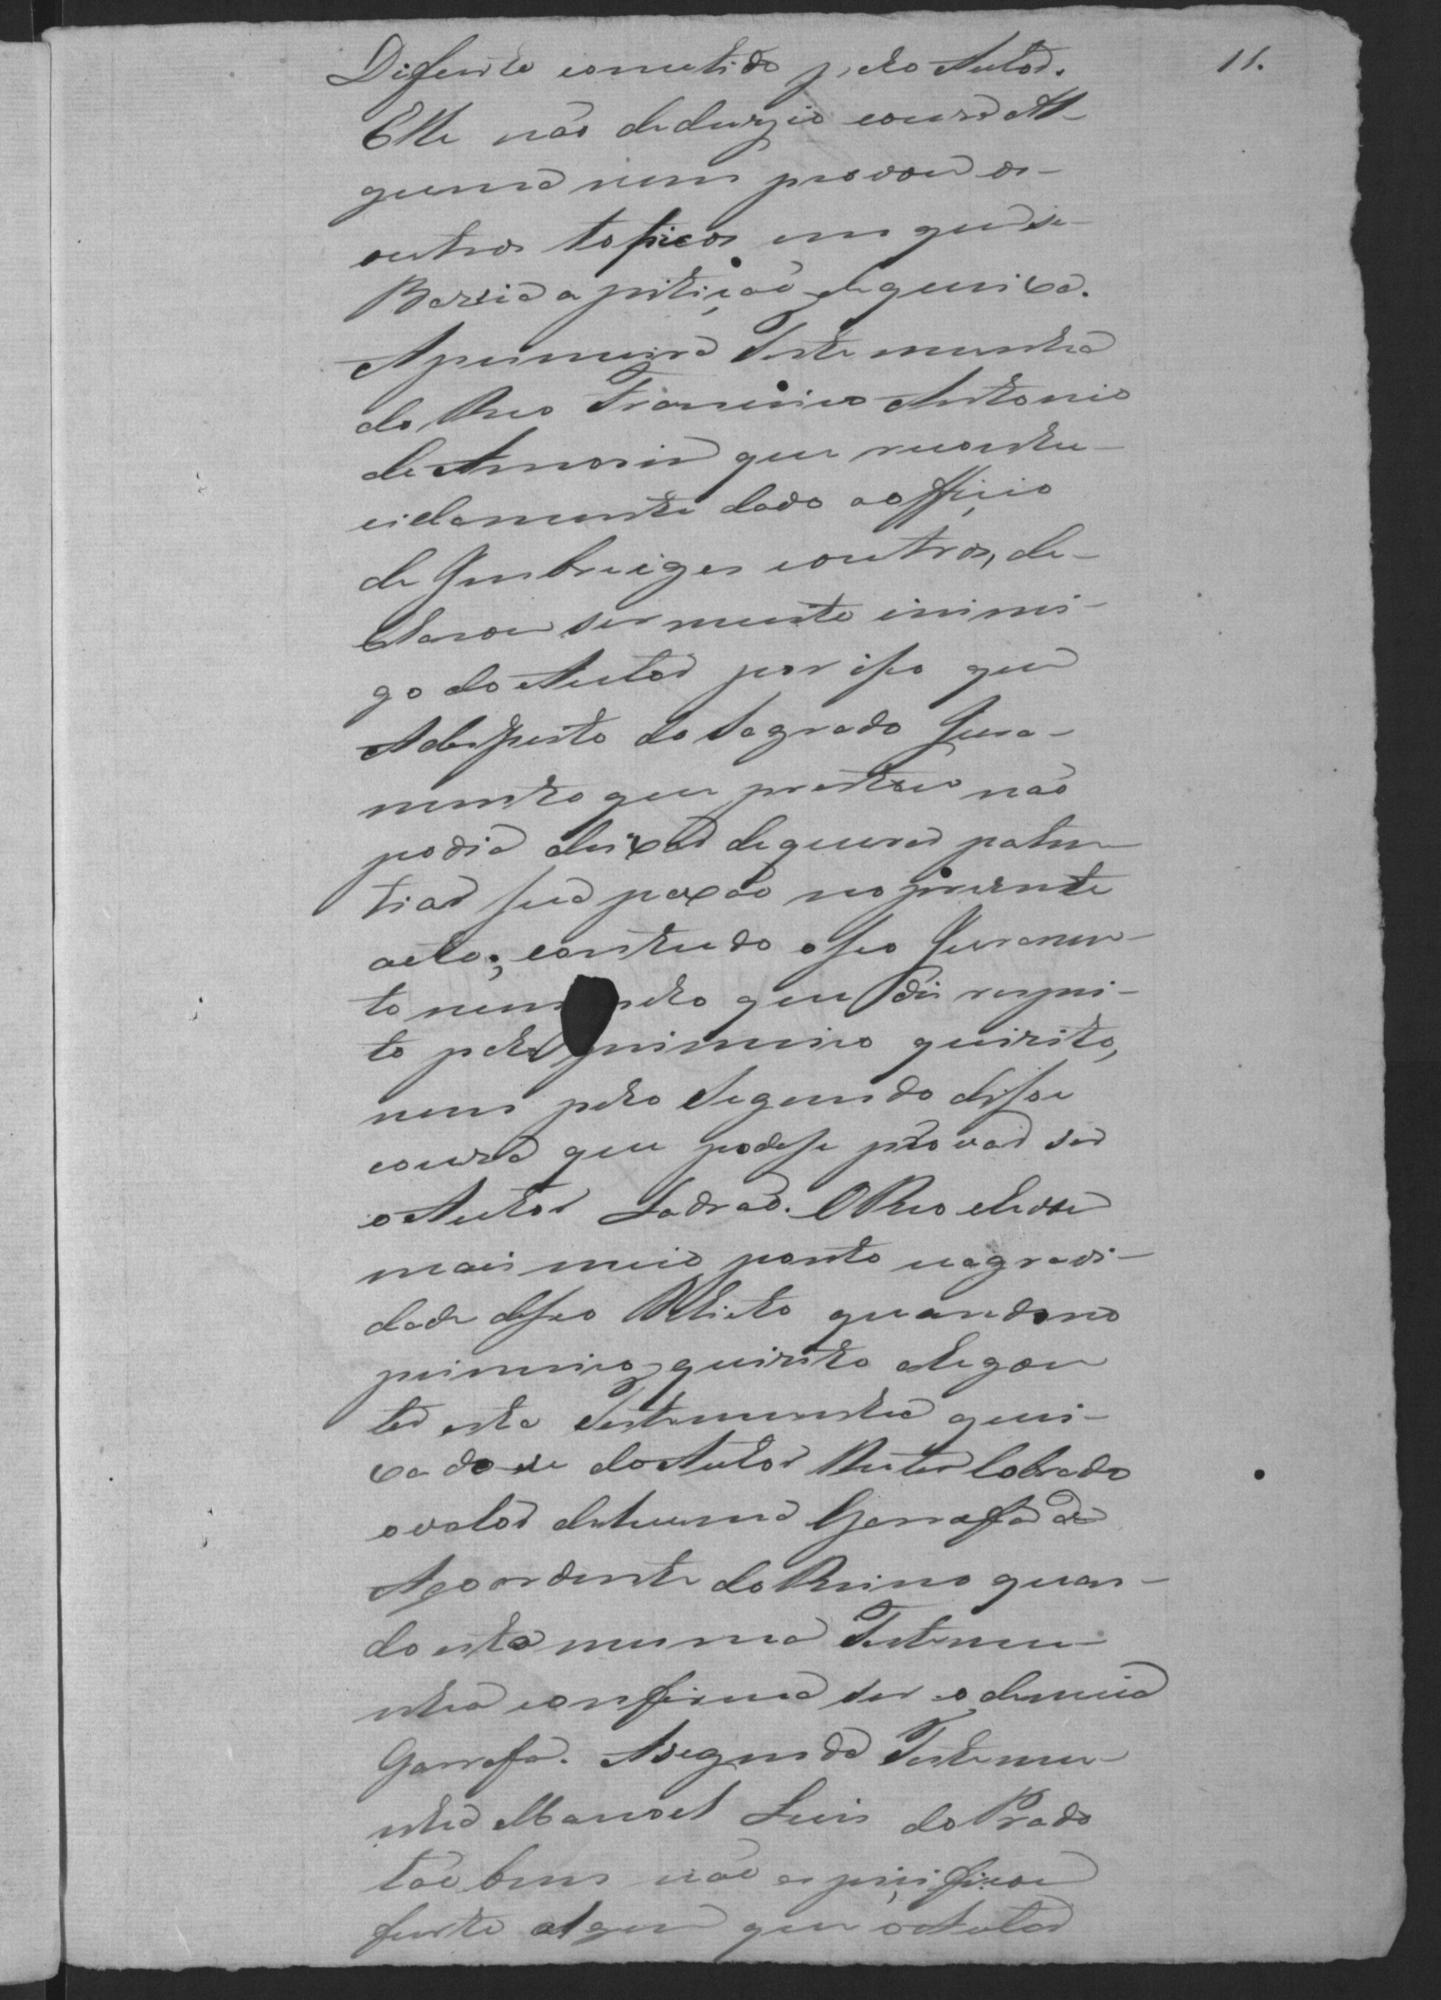 11.
Difunto cometido pelo Autor.
Elle não deduzio couza Al-
guma nem provou os
outros topicos em que se
Bazia a petição de queixa.
A primeira Testemunha
do Reo Francisco Antonio
de Amorin que reconhe-
cidamente dado ao officio
de Imbriages e outros, de-
clarou ser muito inimi-
go do Autor por iso que
A despeito do Sagrado Jura-
mento que prestou não
podia deixar de querer paten-
tiar sua paxão no prezente
acto; contudo o seo Juramen-
to nem pelo que diz respei-
to pelo primeiro quizito,
nem pelo Segundo disse
couza que podese provar ser
o Autor Ladrão. O Reo elevou
mais meio ponto na gravi-
dade de seo Delicto quando no
primeiro quizito alegou
ter esta Testemunha quei-
xado-se do Autor ter cobrado
o valor de huma Garrafa de
Agoardente do Reino quan-
do esta mesma Testemu-
nha confirma ser o de meia
Garrafa. A segunda Testemu-
nha Manoel Luis do Prado
tão bem não especificou
furto algum que o Autor